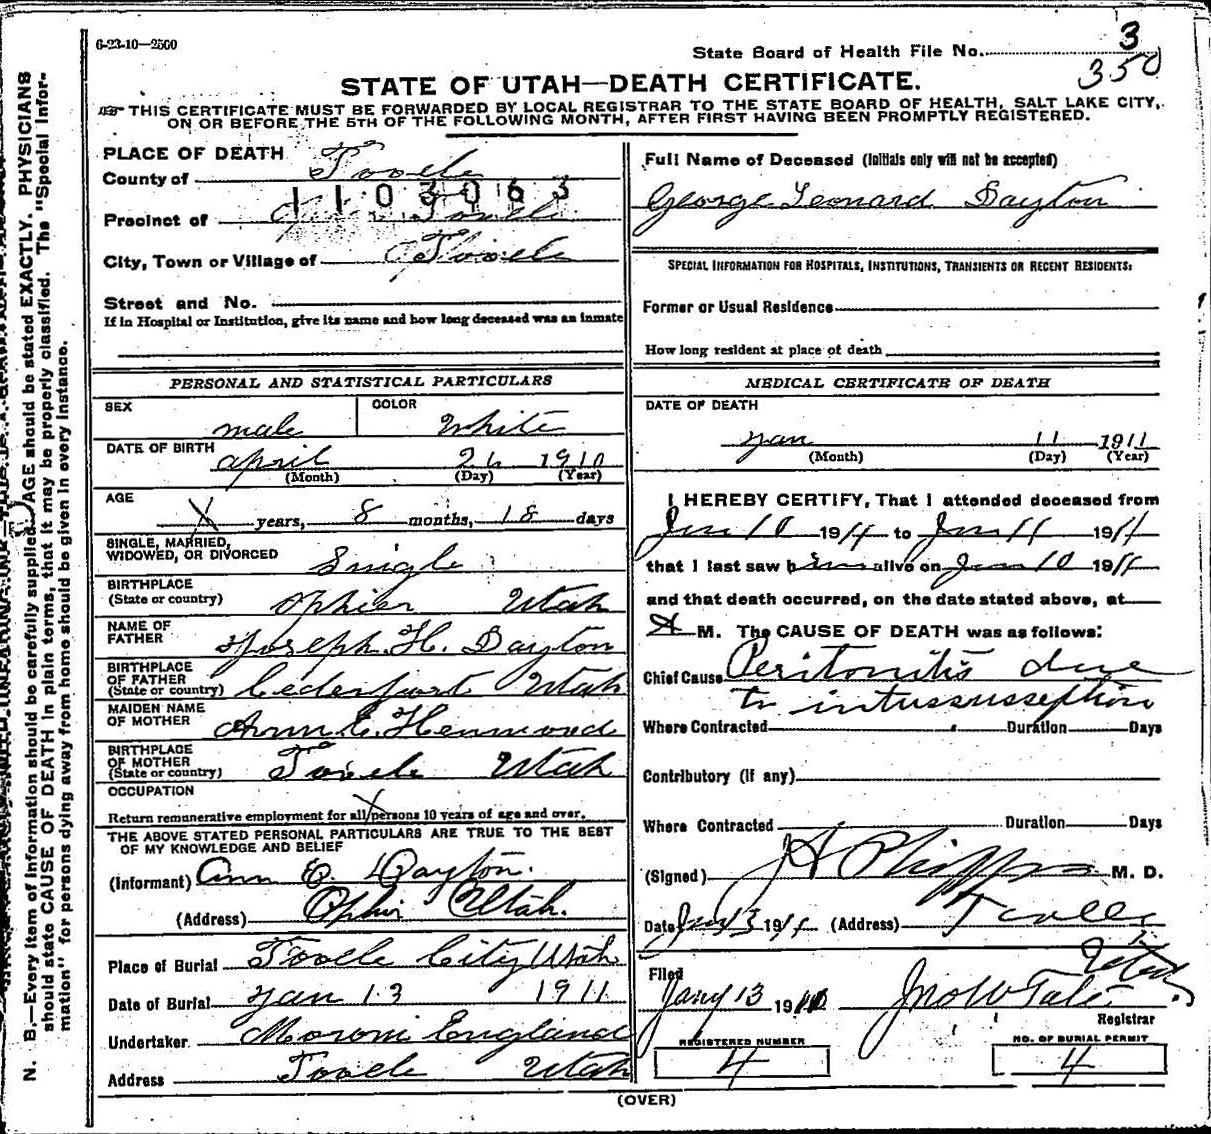 6-23-10—2500
State Board of Health File No. 3
350
STATE OF UTAH—DEATH CERTIFICATE.
THIS CERTIFICATE MUST BE FORWARDED BY LOCAL REGISTRAR TO THE STATE BOARD OF HEALTH, SALT LAKE CITY,
ON OR BEFORE THE 5TH OF THE FOLLOWING MONTH, AFTER FIRST HAVING BEEN PROMPTLY REGISTERED.
PLACE OF DEATH
County of Tooele
1 1 0 3 0 6 3
Precinct of Tooele
City, Town or Village of Tooele
Street and No.
If in Hospital or Institution, give its name and how long deceased was an inmate
Full Name of Deceased (Initials only will not be accepted)
George Leonard Dayton
SPECIAL INFORMATION FOR HOSPITALS, INSTITUTIONS, TRANSIENTS OR RECENT RESIDENTS:
Former or Usual Residence
How long resident at place of death
PERSONAL AND STATISTICAL PARTICULARS
SEX male COLOR White
DATE OF BIRTH april 24 1910
(Month) (Day) (Year)
AGE
X years, 8 months, 18 days
SINGLE, MARRIED,
WIDOWED, OR DIVORCED Single
BIRTHPLACE
(State or country) Ophier Utah
NAME OF
FATHER Joseph H. Dayton
BIRTHPLACE
OF FATHER
(State or country) Cederfort Utah
MAIDEN NAME
OF MOTHER Ann E. Henwood
BIRTHPLACE
OF MOTHER
(State or country) Tooele Utah
OCCUPATION X
Return remunerative employment for all persons 10 years of age and over.
THE ABOVE STATED PERSONAL PARTICULARS ARE TRUE TO THE BEST
OF MY KNOWLEDGE AND BELIEF
(Informant) Ann E. Dayton.
(Address) Ophir Utah.
Place of Burial Tooele City Utah
Date of Burial Jan 13 1911
Undertaker Moroni England
Address Tooele Utah
MEDICAL CERTIFICATE OF DEATH
DATE OF DEATH
Jan 11 1911
(Month) (Day) (Year)
I HEREBY CERTIFY, That I attended deceased from
Jan 10 1911 to Jan 11 1911
that I last saw him alive on Jan 10 1911
and that death occurred, on the date stated above, at
A M. The CAUSE OF DEATH was as follows:
Chief Cause Peritonitis due
to intussusseption
Where Contracted Duration Days
Contributory (If any)
Where Contracted Duration Days
(Signed) J A Phipps M. D.
Date Jan 13 1911 (Address) Tooele
Utah
Filed
Jany 13 19 Jno W Tate
Registrar
REGISTERED NUMBER
4
NO. OF BURIAL PERMIT
4
(OVER)
N. B.—Every item of information should be carefully supplied. AGE should be stated EXACTLY. PHYSICIANS
should state CAUSE OF DEATH in plain terms, that it may be properly classified. The "Special Infor-
mation" for persons dying away from home should be given in every instance.